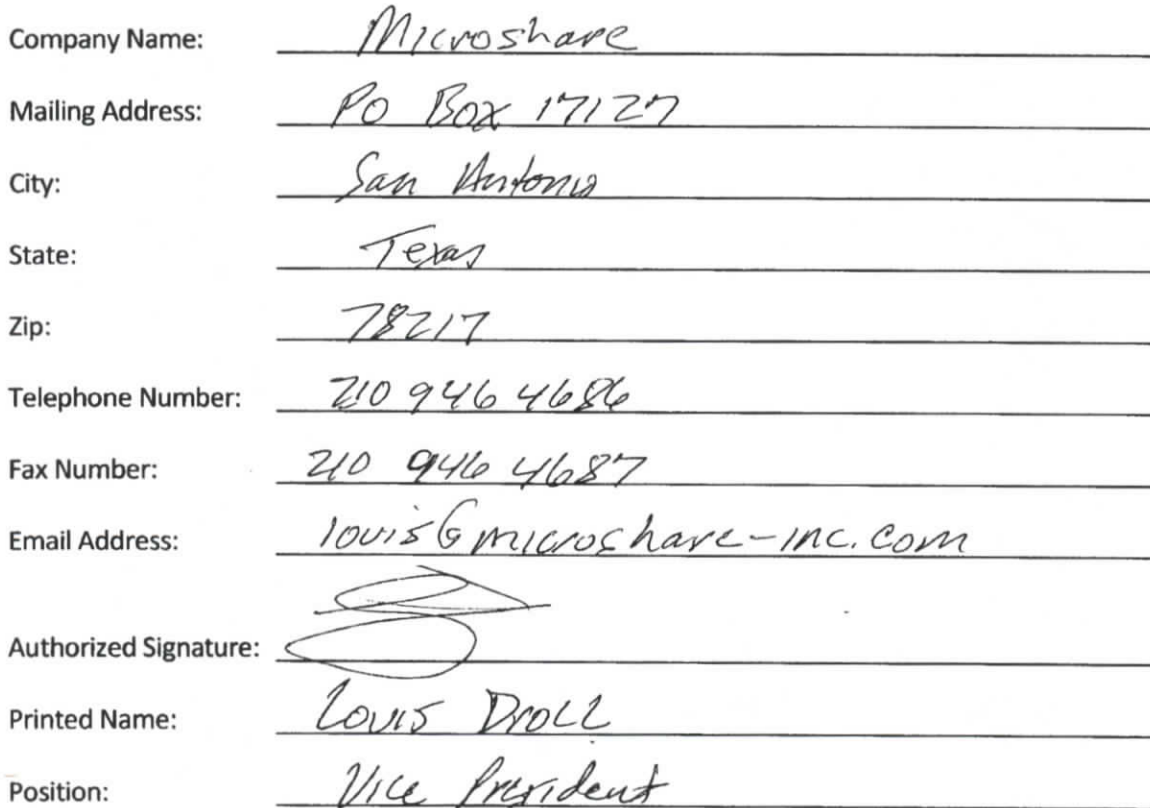 Company Name: Microshare
Mailing Address: PO Box 17127
City: San Antonio
State: Texas
Zip: 78217
Telephone Number: 210 946 4686
Fax Number: 210 946 4687
Email Address: louis@microshare-inc.com
Authorized Signature:
Printed Name: Louis Droll
Position: Vice President